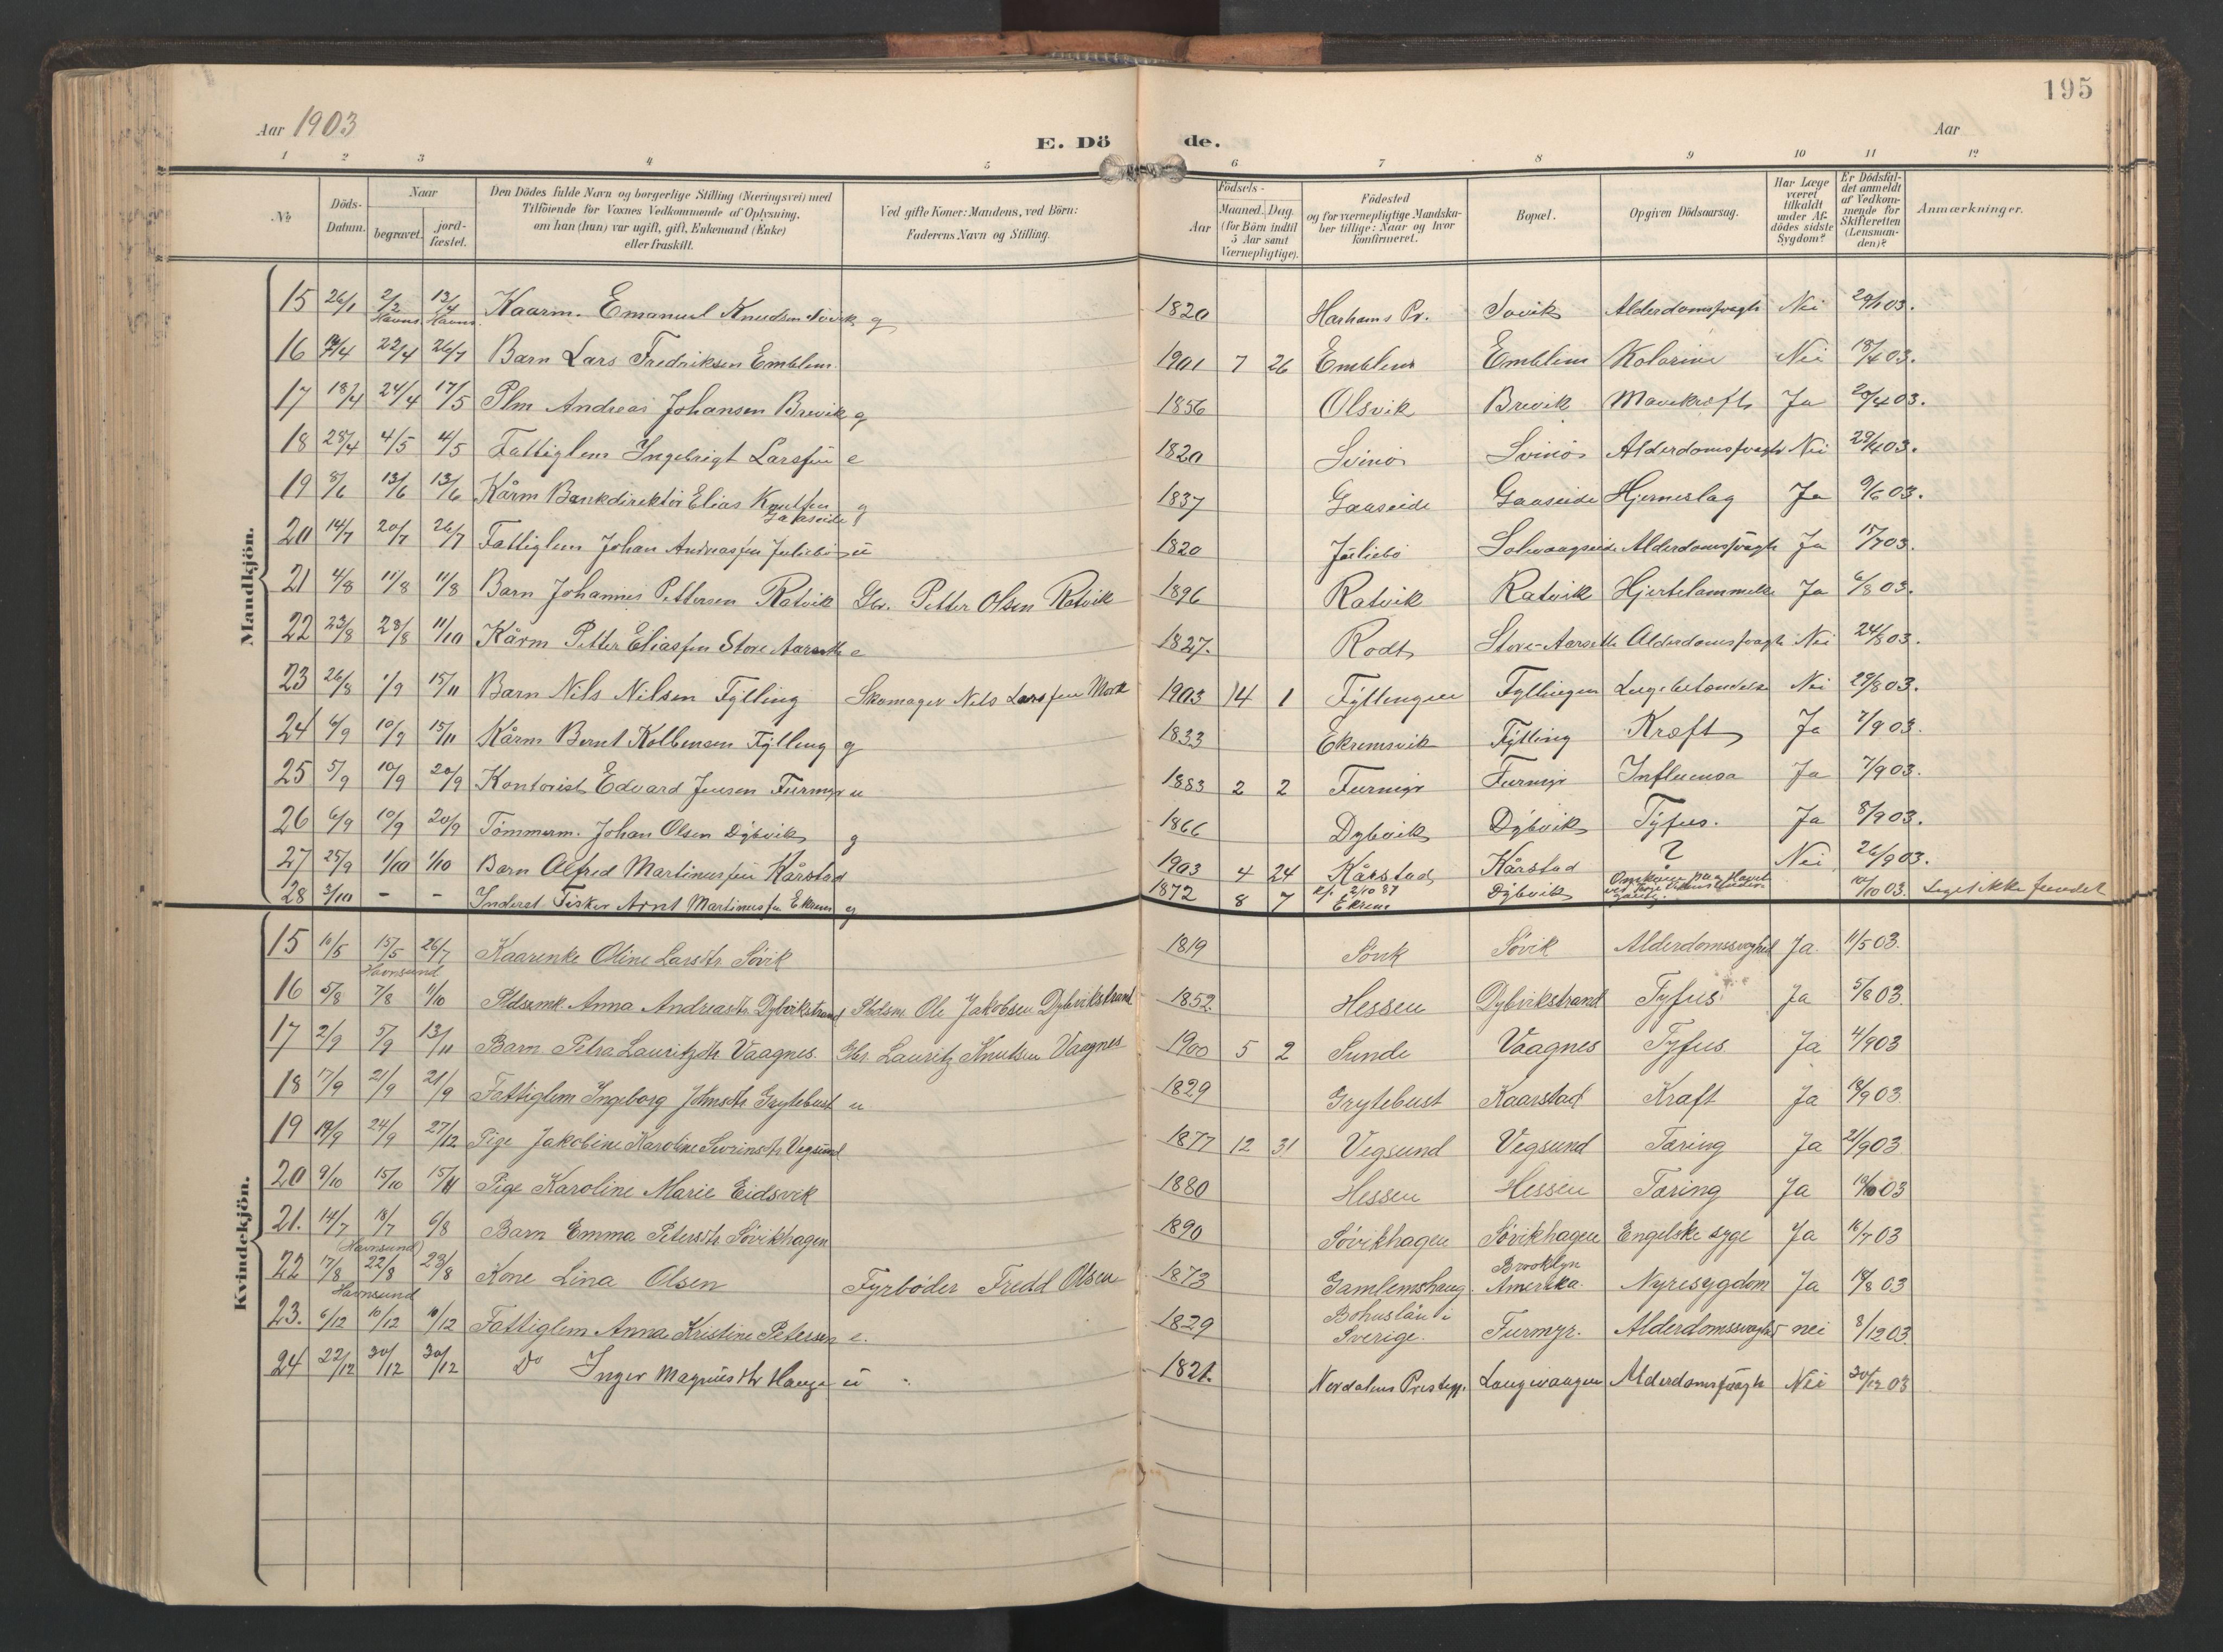 195
Aar 1903
E. Dö de.
Aar
1 2 3 4 5 6 7 8 9 10 11 12
No
Döds-Datum.
Naar
begravet.
jord-fæstet.
Den Dödes fulde Navn og borgerlige Stilling (Næringsvei) med
Tilföiende for Voxnes Vedkommende af Oplysning,
om han (hun) var ugift, gift, Enkemand (Enke)
eller fraskilt.
Ved gifte Koner: Mandens, ved Börn:
Faderens Navn og Stilling.
Födsels-
Aar
Maaned.
Dag.
(for Börn indtil
5 Aar samt
Værnepligtige).
Födested
og for værnepligtige Mandska-
ber tillige: Naar og hvor
konfirmeret.
Bopæl.
Opgiven Dödsaarsag.
Har Læge
været
tilkaldt
under Af-
dödes sidste
Sygdom?
Er Dödsfal-
det anmeldt
af Vedkom-
mende for
Skifteretten
(Lensman-
den)?
Anmærkninger.
Mandkjön.
15 26/1 2/2 13/4 Kaarm. Emanuel Knudsen Søvik g 1820 Harhams Pr. Søvik Alderdomssvagh Nei 29/1 03.
Havns. Havns.
16 14/4 22/4 26/7 Barn Lars Fredriksen Emblem 1901 7 26 Emblem Emblem Kolerine Nei 18/4 03.
17 18/4 24/4 17/5 Plm Andreas Johansen Brevik g 1856 Olsvik Brevik Mavekræft Ja 20/4 03.
18 28/4 4/5 4/5 Fattiglem Ingebrigt Larssen e 1820 Svinö Svinö Alderdomssvagh Nei 29/4 03.
19 8/6 13/6 13/6 Kårm Bankdirektör Elias Knutsen g 1837 Gaaseide Gaaseide Hjerneslag Ja 9/6 03.
Gaaseide
20 14/7 20/7 26/7 Fattiglem Johan Andreassen Juliebö u 1820 Juliebö Solevaagseide Alderdomssvagh Ja 15/7 03.
21 4/8 11/8 11/8 Barn Johannes Pettersen Ratvik Gbr. Petter Olsen Ratvik 1896 Ratvik Ratvik Hjertelammelse Ja 6/8 03.
22 23/8 28/8 11/10 Kårm Petter Eliassen Store Aarseth e 1827. Rodt Store-Aarseth Alderdomssvagh Nei 24/8 03.
23 26/8 1/9 15/11 Barn Nils Nilsen Fylling Skomager Nils Larssen Mork 1903 14 1 Fyllingen Fyllingen Lugebetændelse Nei 29/8 03.
24 6/9 10/9 15/11 Kårm Bernt Kolbensen Fylling g 1833 Ekremsvik Fylling Kræft Ja 7/9 03.
25 5/9 10/9 20/9 Kontorist Edvard Jensen Furmyr u 1883 2 2 Furmyr Furmyr Influensa Ja 7/9 03.
26 6/9 10/9 20/9 Tömmerm. Johan Olsen Dybvik g 1866 Dybvik Dybvik Tyfus. Ja 8/9 03.
27 25/9 1/10 1/10 Barn Alfred Martinussen Kårstad 1903 4 24 Kårstad Kårstad ? Nei 26/9 03.
28 3/10 - - Inderst Fisker Arnt Martinussen Ekrem g 1872 8 7 2/10 87 Ekrem Dybvik Omkommen paa Havet 10/10 03. Liget ikke fundet
Kvindekjön.
15 10/5 15/5 26/7 Kaarenke Oline Larsdtr Søvik 1819 Søvik Søvik Alderdomssvaghed Ja 11/5 03.
Havnsund
16 5/8 7/8 11/10 Pldsemk. Anna Andreasdtr. Dybvikstrand Pldsm. Ole Jakobsen Dybvikstrand 1852. Hessen Dybvikstrand Tyfus Ja 5/8 03.
17 2/9 5/9 13/11 Barn Petra Lauritzdtr. Vaagnes. Gbr. Lauritz Knutsen Vaagnes 1900 5 2 Sunde Vaagnes Tyfus Ja 4/9 03
18 17/9 21/9 21/9 Fattiglem Ingeborg Johnsdtr Grytebust u 1829 Grytebust Kaarstad Kræft Ja 18/9 03
19 19/9 24/9 27/12 Pige Jakobine Karoline Sivrinsdtr. Vegsund 1877 12 31 Vegsund Vegsund Tæring Ja 21/9 03
20 9/10 15/10 15/11 Pige Karoline Marie Eidsvik 1880 Hessen Hessen Tæring Ja 10/10 03
21. 14/7 18/7 6/8 Barn Emma Petersdtr Søvikhagen 1890 Søvikhagen Søvikhagen Engelske syge Ja 16/7 03
(Havnsund)
22 17/8 22/8 23/8 Kone Lina Olsen Fyrbøder Fredd Olsen 1873 Gamlemshaug. Brooklyn Amerika. Nyresygdom Ja 18/8 03
Havnsund
23. 6/12 10/12 10/12 Fattiglem Anna Kristine Petersen e. 1829 Bohuslän i Sverige. Furmyr. Alderdomssvaghed nei 8/12 03
24 22/12 30/12 30/12 Do Inger Magnusdtr Hauge u 1821. Nordalens Prestegj. Langevaagen Alderdomssvagh Nei 30/12 03